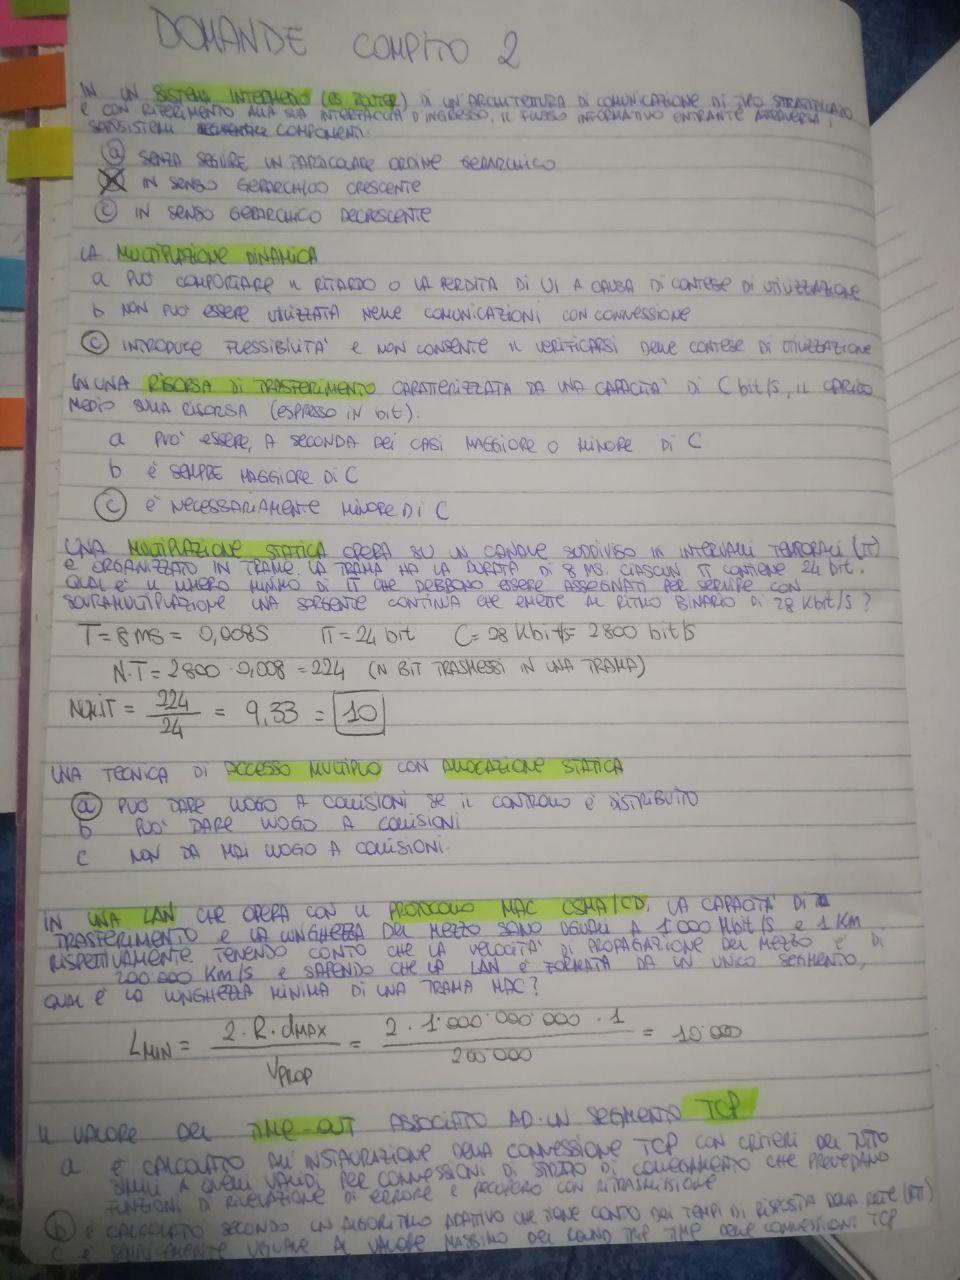 DOMANDE COMPITO 2
IN UN SISTEMA INTERMEDIO (ES ROUTER) DI UN'ARCHITETTURA DI COMUNICAZIONE DI TIPO STRATIFICATO
E CON RIFERIMENTO ALLA SUA INTERFACCIA D'INGRESSO, IL FLUSSO INFORMATIVO ENTRANTE ATTRAVERSA I
SOTTOSISTEMI COMPONENTI:
a SENZA SEGUIRE UN PARTICOLARE ORDINE GERARCHICO
IN SENSO GERARCHICO CRESCENTE
c IN SENSO GERARCHICO DECRESCENTE
LA MULTIPLAZIONE DINAMICA
a PUÒ COMPORTARE IL RITARDO O LA PERDITA DI UI A CAUSA DI CONTESE DI UTILIZZAZIONE
b NON PUÒ ESSERE UTILIZZATA NELLE COMUNICAZIONI CON CONNESSIONE
c INTRODUCE FLESSIBILITA' E NON CONSENTE IL VERIFICARSI DELLE CONTESE DI UTILIZZAZIONE
IN UNA RISORSA DI TRASFERIMENTO CARATTERIZZATA DA UNA CAPACITA' DI C bit/s, IL CARICO
MEDIO SULLA RISORSA (ESPRESSO IN bit):
a PUO' ESSERE, A SECONDA DEI CASI MAGGIORE O MINORE DI C
b È SEMPRE MAGGIORE DI C
c È NECESSARIAMENTE MINORE DI C
UNA MULTIPLAZIONE STATICA OPERA SU UN CANALE SUDDIVISO IN INTERVALLI TEMPORALI (IT)
E ORGANIZZATO IN TRAME. LA TRAMA HA LA DURATA DI 8 MS. CIASCUN IT CONTIENE 24 bit.
QUAL È IL NUMERO MINIMO DI IT CHE DEBBONO ESSERE ASSEGNATI PER SERVIRE CON
SOVRAMULTIPLAZIONE UNA SORGENTE CONTINUA CHE EMETTE AL RITMO BINARIO DI 28 Kbit/S ?
T = 8 MS = 0,008S IT = 24 bit C = 28 Kbit/s = 2800 bit/s
N.T = 2800 · 0,008 = 224 (N BIT TRASMESSI IN UNA TRAMA)
NUM.IT = 224/24 = 9,33 = 10
UNA TECNICA DI ACCESSO MULTIPLO CON ALLOCAZIONE STATICA
a PUÒ DARE LUOGO A COLLISIONI SE IL CONTROLLO È DISTRIBUITO
b PUO' DARE LUOGO A COLLISIONI
c NON DA MAI LUOGO A COLLISIONI.
IN UNA LAN CHE OPERA CON IL PROTOCOLLO MAC CSMA/CD, LA CAPACITA' DI
TRASFERIMENTO E LA LUNGHEZZA DEL MEZZO SONO UGUALI A 1000 Mbit/S E 1 KM
RISPETTIVAMENTE. TENENDO CONTO CHE LA VELOCITA' DI PROPAGAZIONE DEL MEZZO È DI
200 000 KM/S E SAPENDO CHE LA LAN È FORMATA DA UN UNICO SEGMENTO,
QUAL È LA LUNGHEZZA MINIMA DI UNA TRAMA MAC?
LMIN = 2·R·dMAX / VPROP = 2·1.000.000.000·1 / 200 000 = 10.000
IL VALORE DEL TIME-OUT ASSOCIATO AD UN SEGMENTO TCP
a È CALCOLATO ALL'INSTAURAZIONE DELLA CONNESSIONE TCP CON CRITERI DEL TUTTO
SIMILI A QUELLI VALIDI PER CONNESSIONI DI STRATO DI COLLEGAMENTO CHE PREVEDANO
FUNZIONI DI RILEVAZIONE DI ERRORE E RECUPERO CON RITRASMISSIONE
b È CALCOLATO SECONDO UN ALGORITMO ADATTIVO CHE TIENE CONTO DEI TEMPI DI RISPOSTA DELLA RETE (RTT)
c È SEMPLICEMENTE UGUALE AL VALORE MASSIMO DEL ROUND TRIP TIME DELLE CONNESSIONI TCP